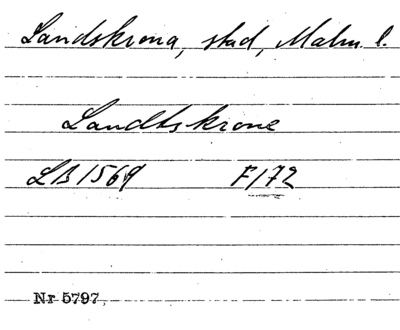 Landskrona, stad, Malm. l.
Landtskrone
LB 1569 F/72
Nr 5797.